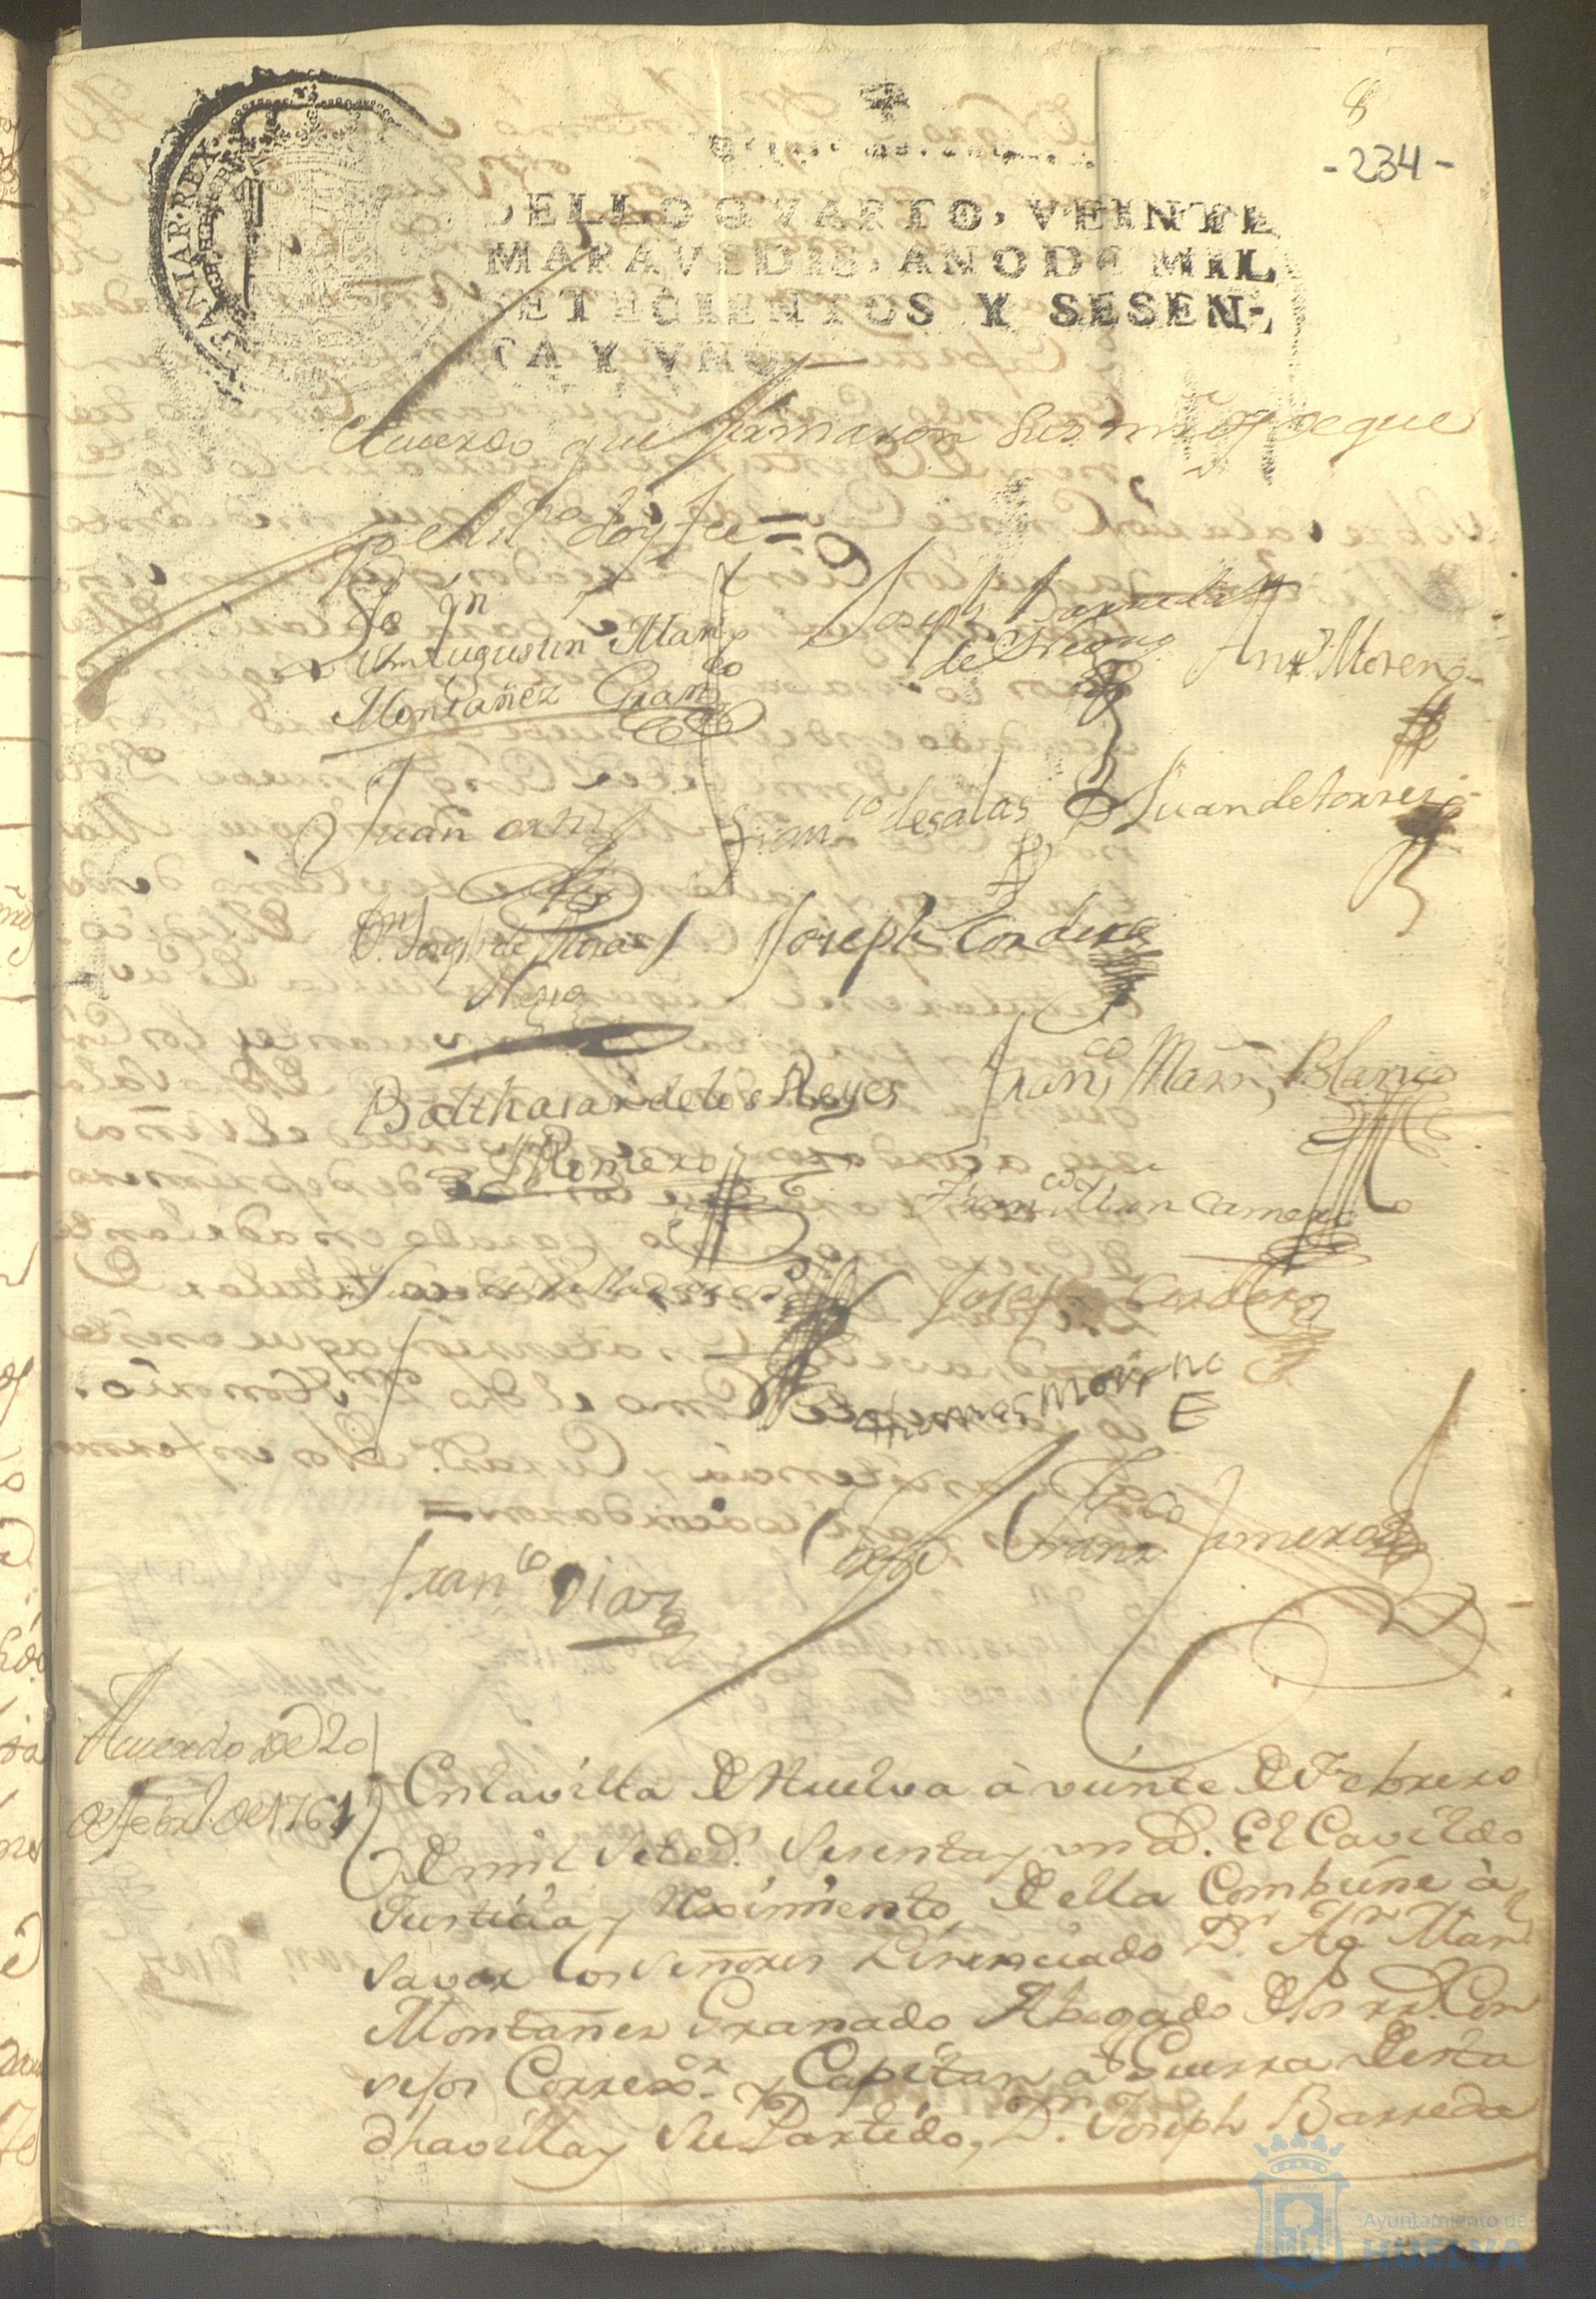 8
-234-
SELLO QVARTO, VEINTE
MARAVEDIS, AÑO DE MIL
SETECIENTOS Y SESEN-
TA Y VNO
HISPANIAR·REX
Acuerdo que firmaron Sus mrds. de que
yo el ess.no doy fee =
Lizdo. Dn. Augustin Marn
Montañez Granado
Joseph Barreda
de
Antt.o Moreno
Juan ortiz
Franco de salas
Juan de torres
Dn. Joseph de Mora
Negro
Joseph Cordero
Balthasar de los Reyes
Romero
Franco Marn. Blanco
Franco Mrn camero
Joseph Cordero
thomas moreno
Franco Diaz
Franco Jamero
Acuerdo de 20
de febro. de 1761
En la villa de Huelva à veinte de Febrero
de mil setecs. sesenta y un as. El Cavildo
Justicia y Reximiento de ella Combiene à
savex los señores Lisenciado Dn. Agn Marn
Montañez Granado Abogado de los rrs. Con
sejos Correxor. y Capitan à Guerra de esta
dha villa y su Partido, Dn. Joseph Barreda
Ayuntamiento de
HUELVA